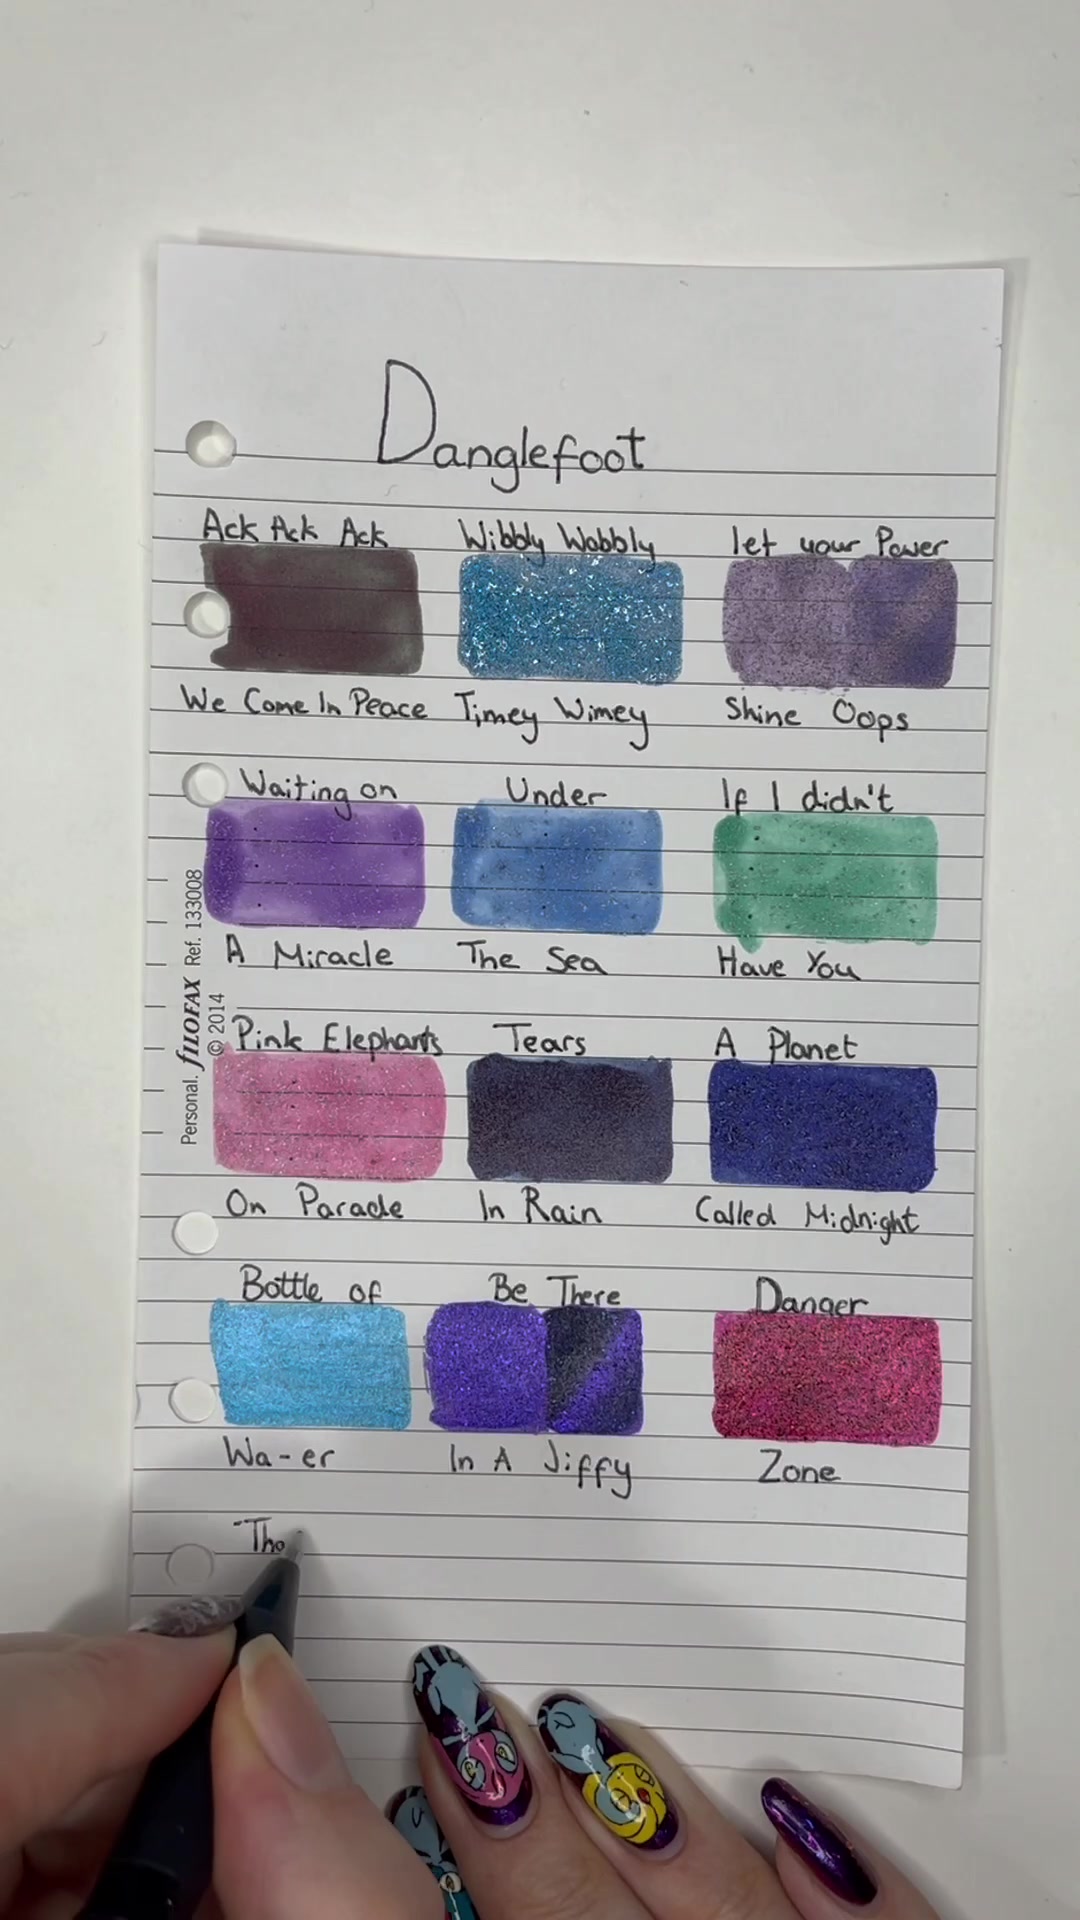 Danglefoot
Ack Ack Ack
We Come In Peace
Wibbly Wobbly
Timey Wimey
let your Power
Shine Oops
Waiting on
A Miracle
Under
The Sea
If I didn't
Have You
Pink Elephants
On Parade
Tears
In Rain
A Planet
Called Midnight
Bottle of
Wa-er
Be There
In A Jiffy
Danger
Zone
"Tho
Personal. FILOFAX Ref. 133008
© 2014